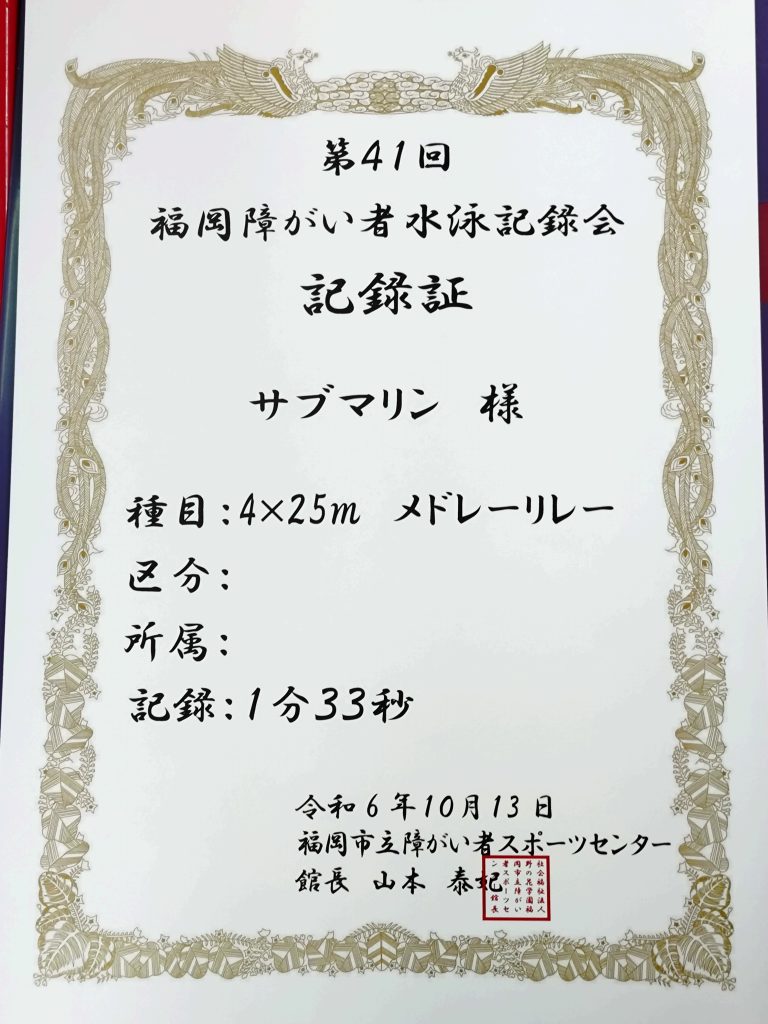 第41回
福岡障がい者水泳記録会
記録証
サブマリン 様
種目：4×25m メドレーリレー
区分：
所属：
記録：1分33秒
令和6年10月13日
福岡市立障がい者スポーツセンター
館長 山本 泰妃
社会福祉法人
野の花学園福
岡市立障がい
者スポーツセ
ン 館長